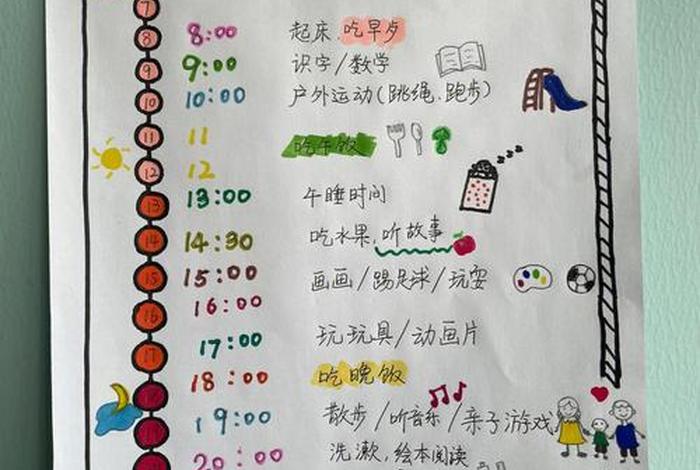 7
8 8:00 起床.吃早歺
9 9:00 识字/数学
10 10:00 户外运动(跳绳.跑步)
11 11 吃午饭
12 12
13 13:00 午睡时间
14 14:30 吃水果,听故事
15 15:00 画画/踢足球/玩耍
16 16:00
17 17:00 玩玩具/动画片
18:00 吃晚饭
19:00 散步/听音乐/亲子游戏
20:00 洗漱,绘本阅读